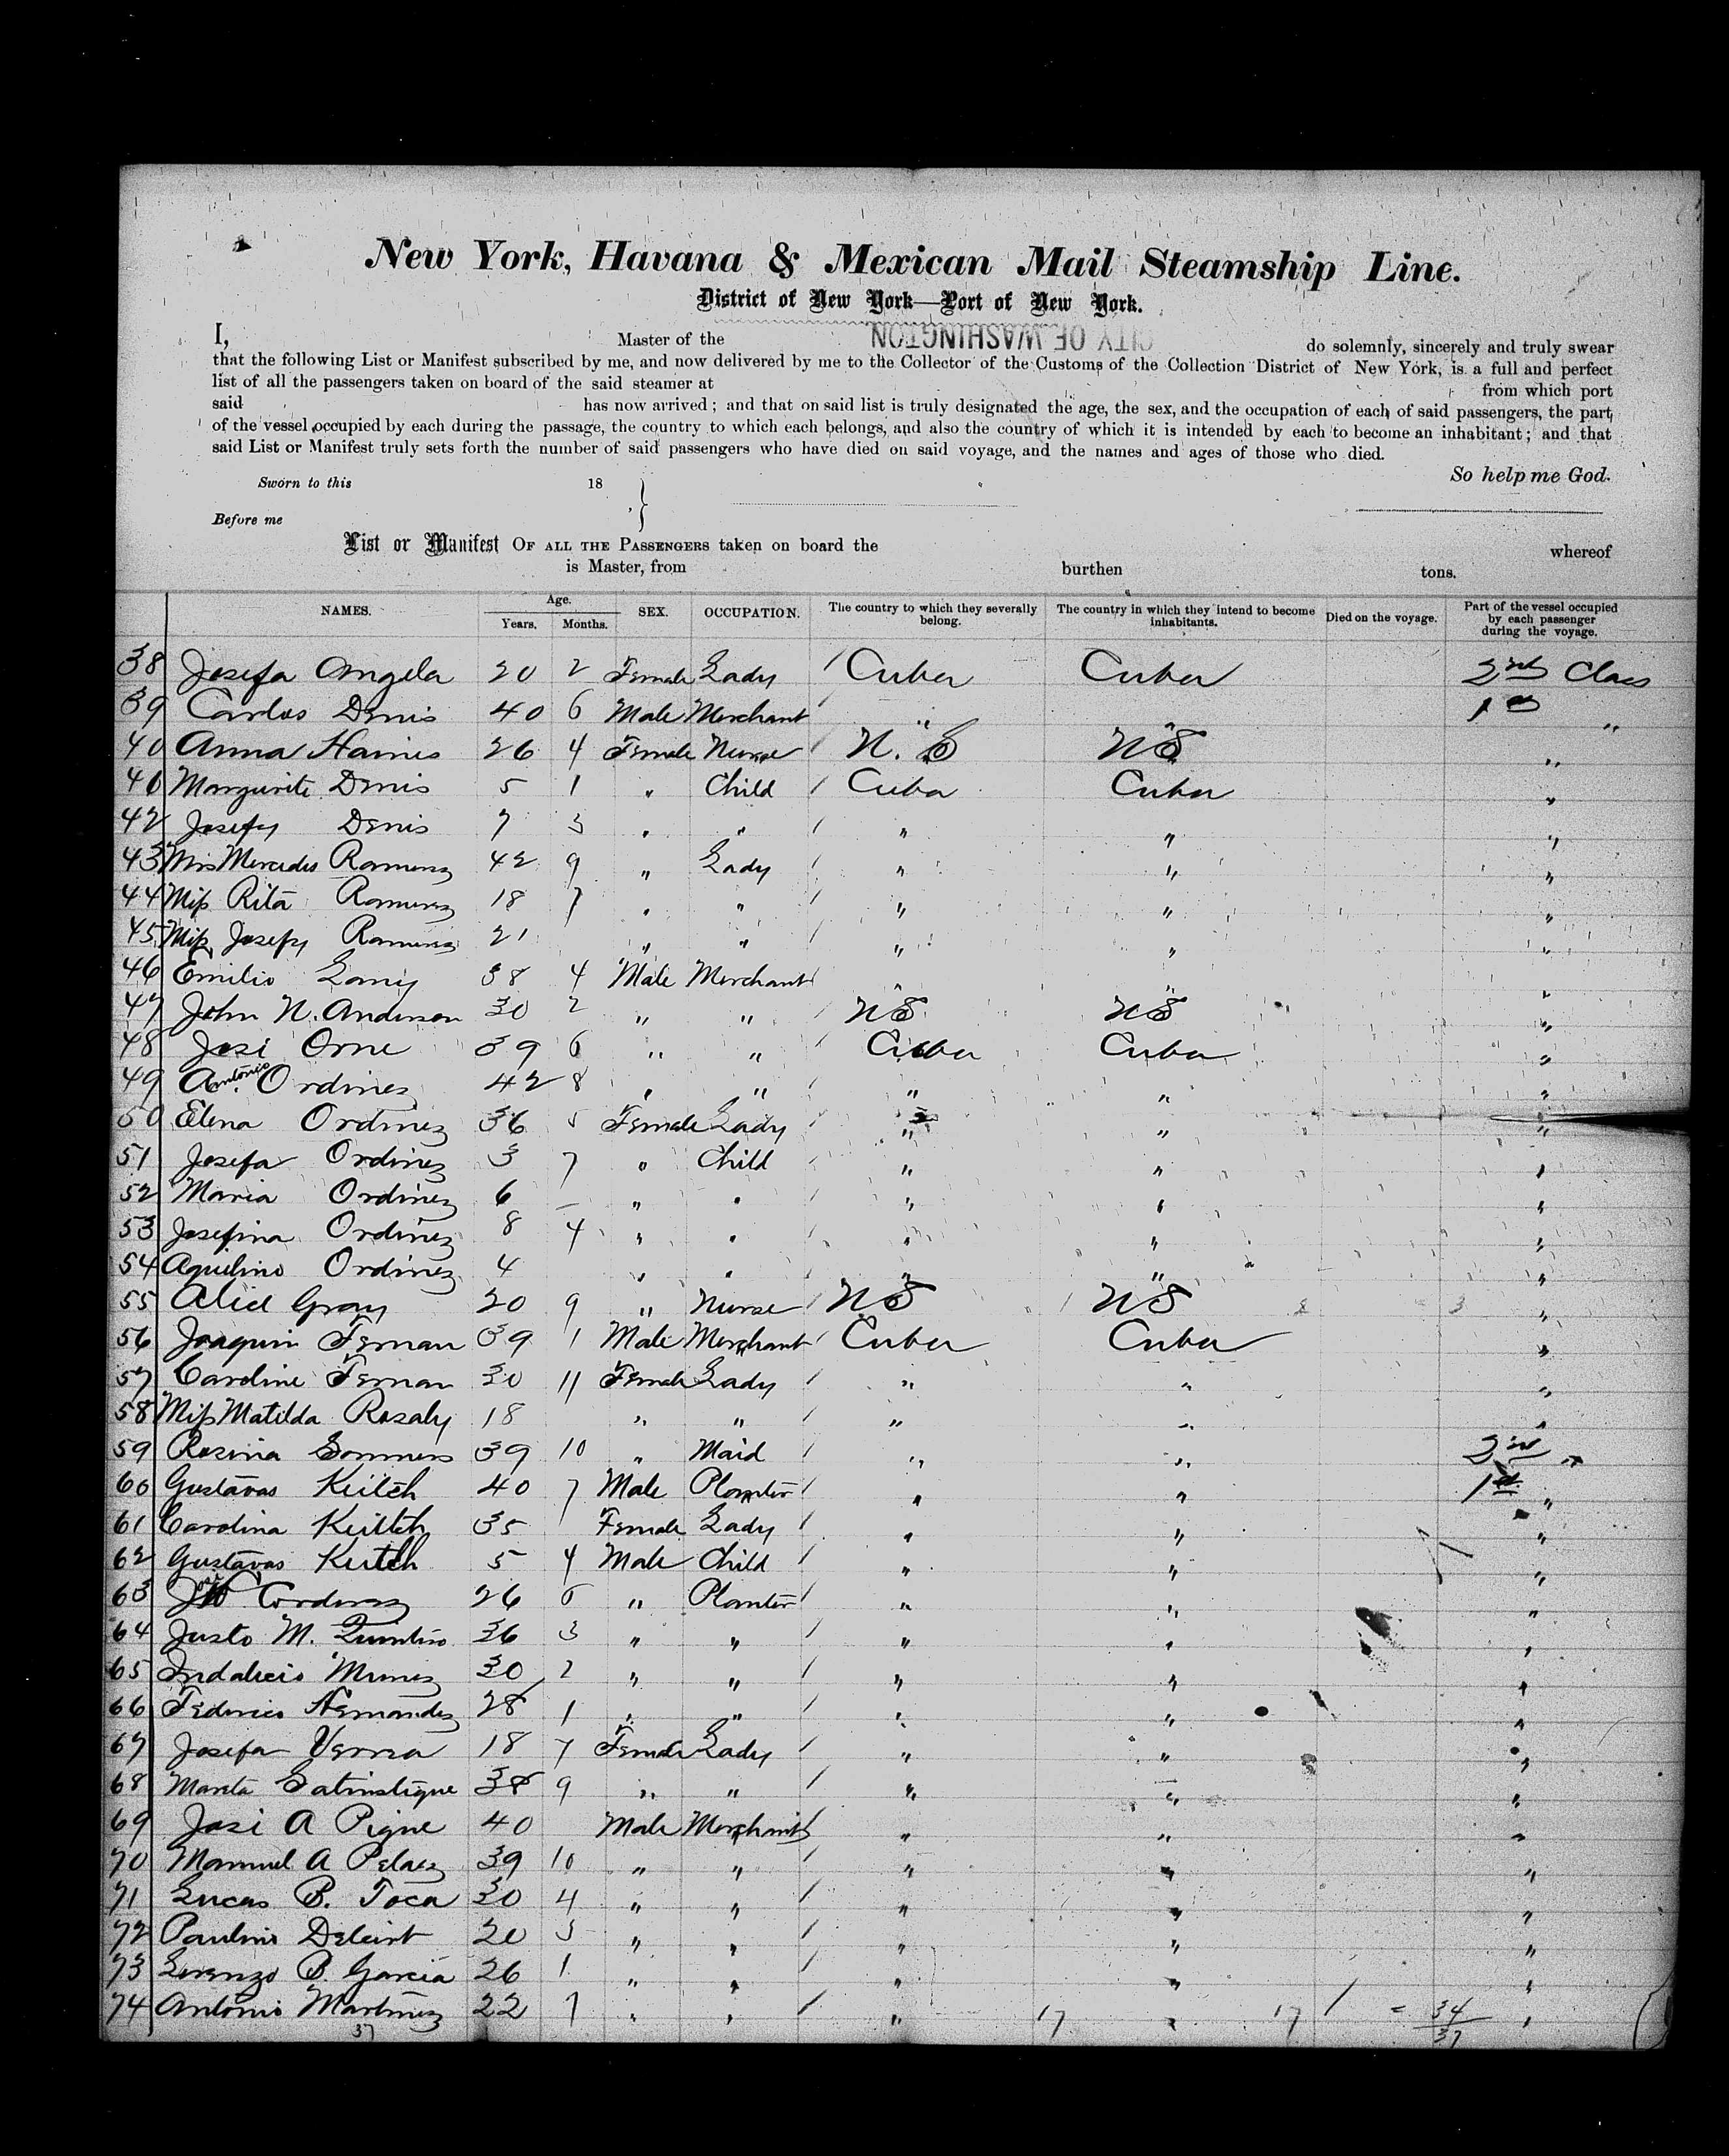 New York, Havana & Mexican Mail Steamship Line.
District of New York—Port of New York.
CITY OF WASHINGTON
I, Master of the do solemnly, sincerely and truly swear
that the following List or Manifest subscribed by me, and now delivered by me to the Collector of the Customs of the Collection District of New York, is a full and perfect
list of all the passengers taken on board of the said steamer at from which port
said has now arrived; and that on said list is truly designated the age, the sex, and the occupation of each of said passengers, the part
of the vessel occupied by each during the passage, the country to which each belongs, and also the country of which it is intended by each to become an inhabitant; and that
said List or Manifest truly sets forth the number of said passengers who have died on said voyage, and the names and ages of those who died.
So help me God.
Sworn to this 18
Before me
List or Manifest OF ALL THE PASSENGERS taken on board the whereof
is Master, from burthen tons.
NAMES. Age. Years. Months. SEX. OCCUPATION. The country to which they severally belong. The country in which they intend to become inhabitants. Died on the voyage. Part of the vessel occupied by each passenger during the voyage.
38 Josefa Angela 20 2 Female Lady Cuba Cuba 2nd Class
39 Carlos Denis 40 6 Male Merchant " " 1st "
40 Anna Haines 26 4 Female Nurse U.S US "
41 Marguerite Denis 5 1 " Child Cuba Cuba "
42 Josefy Denis 7 3 " " " " "
43 Mrs Mercedes Ramirez 42 9 " Lady " " "
44 Miss Rita Ramirez 18 7 " " " " "
45 Miss Josefy Ramirez 21 " " " " "
46 Emilio 38 4 Male Merchant " " "
47 John N. Anderson 30 2 " " US US "
48 Jose Orne 39 6 " " Cuba Cuba "
49 Antonio Ordinez 42 8 " " " " "
50 Elena Ordinez 36 5 Female Lady " " "
51 Josefa Ordinez 3 7 " Child " " "
52 Maria Ordinez 6 — " " " " "
53 Josefina Ordinez 8 4 " " " " "
54 Aquilino Ordinez 4 " " " " "
55 Alice Gray 20 9 " Nurse US US "
56 Joaquin Ferran 39 1 Male Merchant Cuba Cuba "
57 Caroline Ferran 30 11 Female Lady " " "
58 Miss Matilda Rosaly 18 " " " " "
59 Rosina Sommers 39 10 " Maid " " 2nd "
60 Gustavas Keitch 40 7 Male Planter " " 1st "
61 Carolina Keitch 35 Female Lady " " "
62 Gustavas Keitch 5 4 Male Child " " "
63 26 6 " Planter " " "
64 Justo M. 36 3 " " " " "
65 Indalecio Munez 30 2 " " " " "
66 Federico Hernandez 28 1 " " " " "
67 Josefa 18 7 Female Lady " " "
68 38 9 " " " " "
69 Jose A Pigne 40 Male Merchant " " "
70 Manuel A Pelaez 39 10 " " " " "
71 Lucas B. Toca 30 4 " " " " "
72 Paulino 20 5 " " " " "
73 Lorenzo B. Garcia 26 1 " " " " "
74 Antonio Martinez 22 7 " " " " "
37 17 17 1 = 34
37